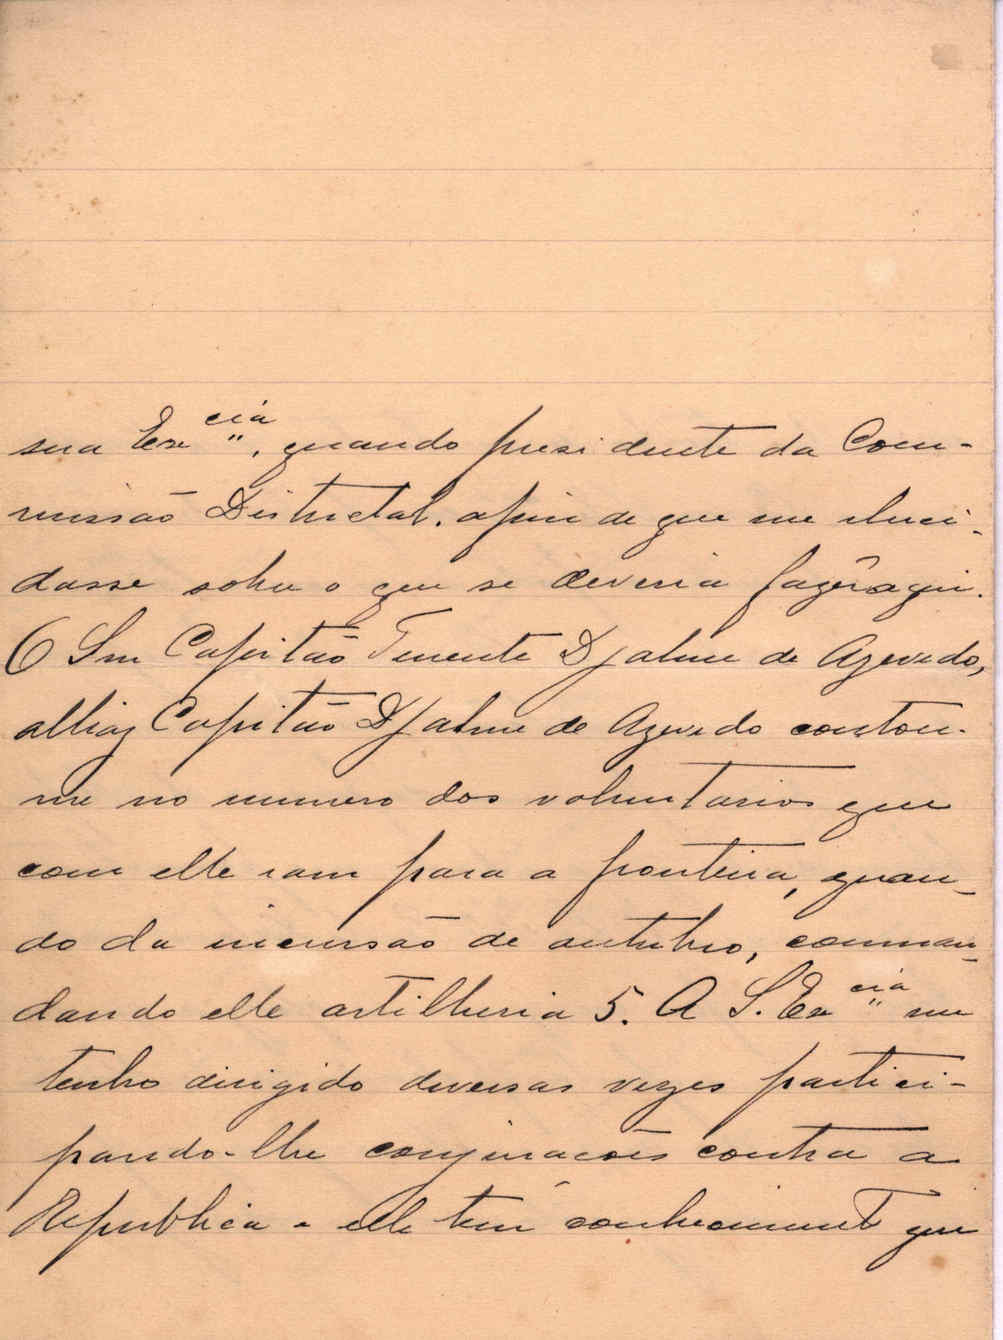 sua Ex.cia, quando presidente da Com-
missão Districtal, afim de que me eluci-
dasse sobre o que se deveria fazêr aqui.
O Snr Capitão Tenente Djalme de Azevedo,
alliaz Capitão Djalme de Azevedo contou-
me no numero dos voluntarios que
com elle iam para a fronteira, quan-
do da incursão de outubro, comman-
dando elle artilheria 5. A S. Ex.cia me
tenho dirigido diversas vezes partici-
pando-lhe conjuracões contra a
Republica e elle tem conheciment que